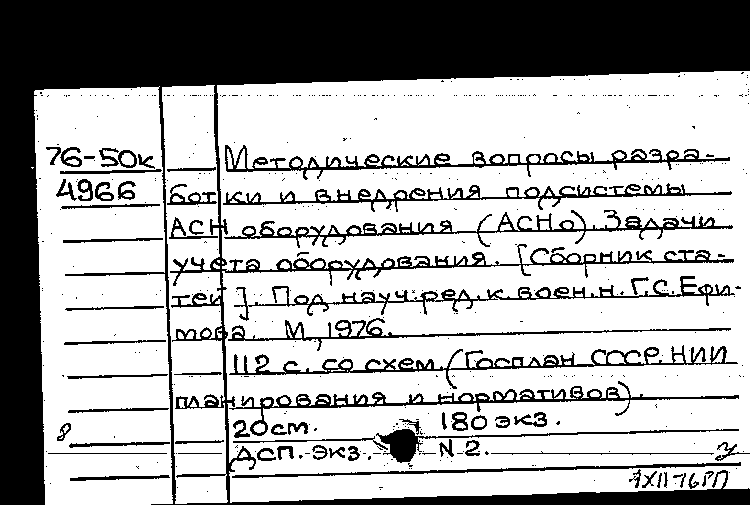 76-50к Методические вопросы разра-
4966 ботки и внедрения подсистемы
АСН оборудования (АСНо). Задачи
учета оборудования. [Сборник ста-
тей]. Под науч. ред. к. воен. н. Г.С. Ефи-
мова. М., 1976.
112 с. со схем. (Госплан СССР. НИИ
планирования и нормативов).
8 20 см. 180 экз.
ДСП. Экз. N 2.